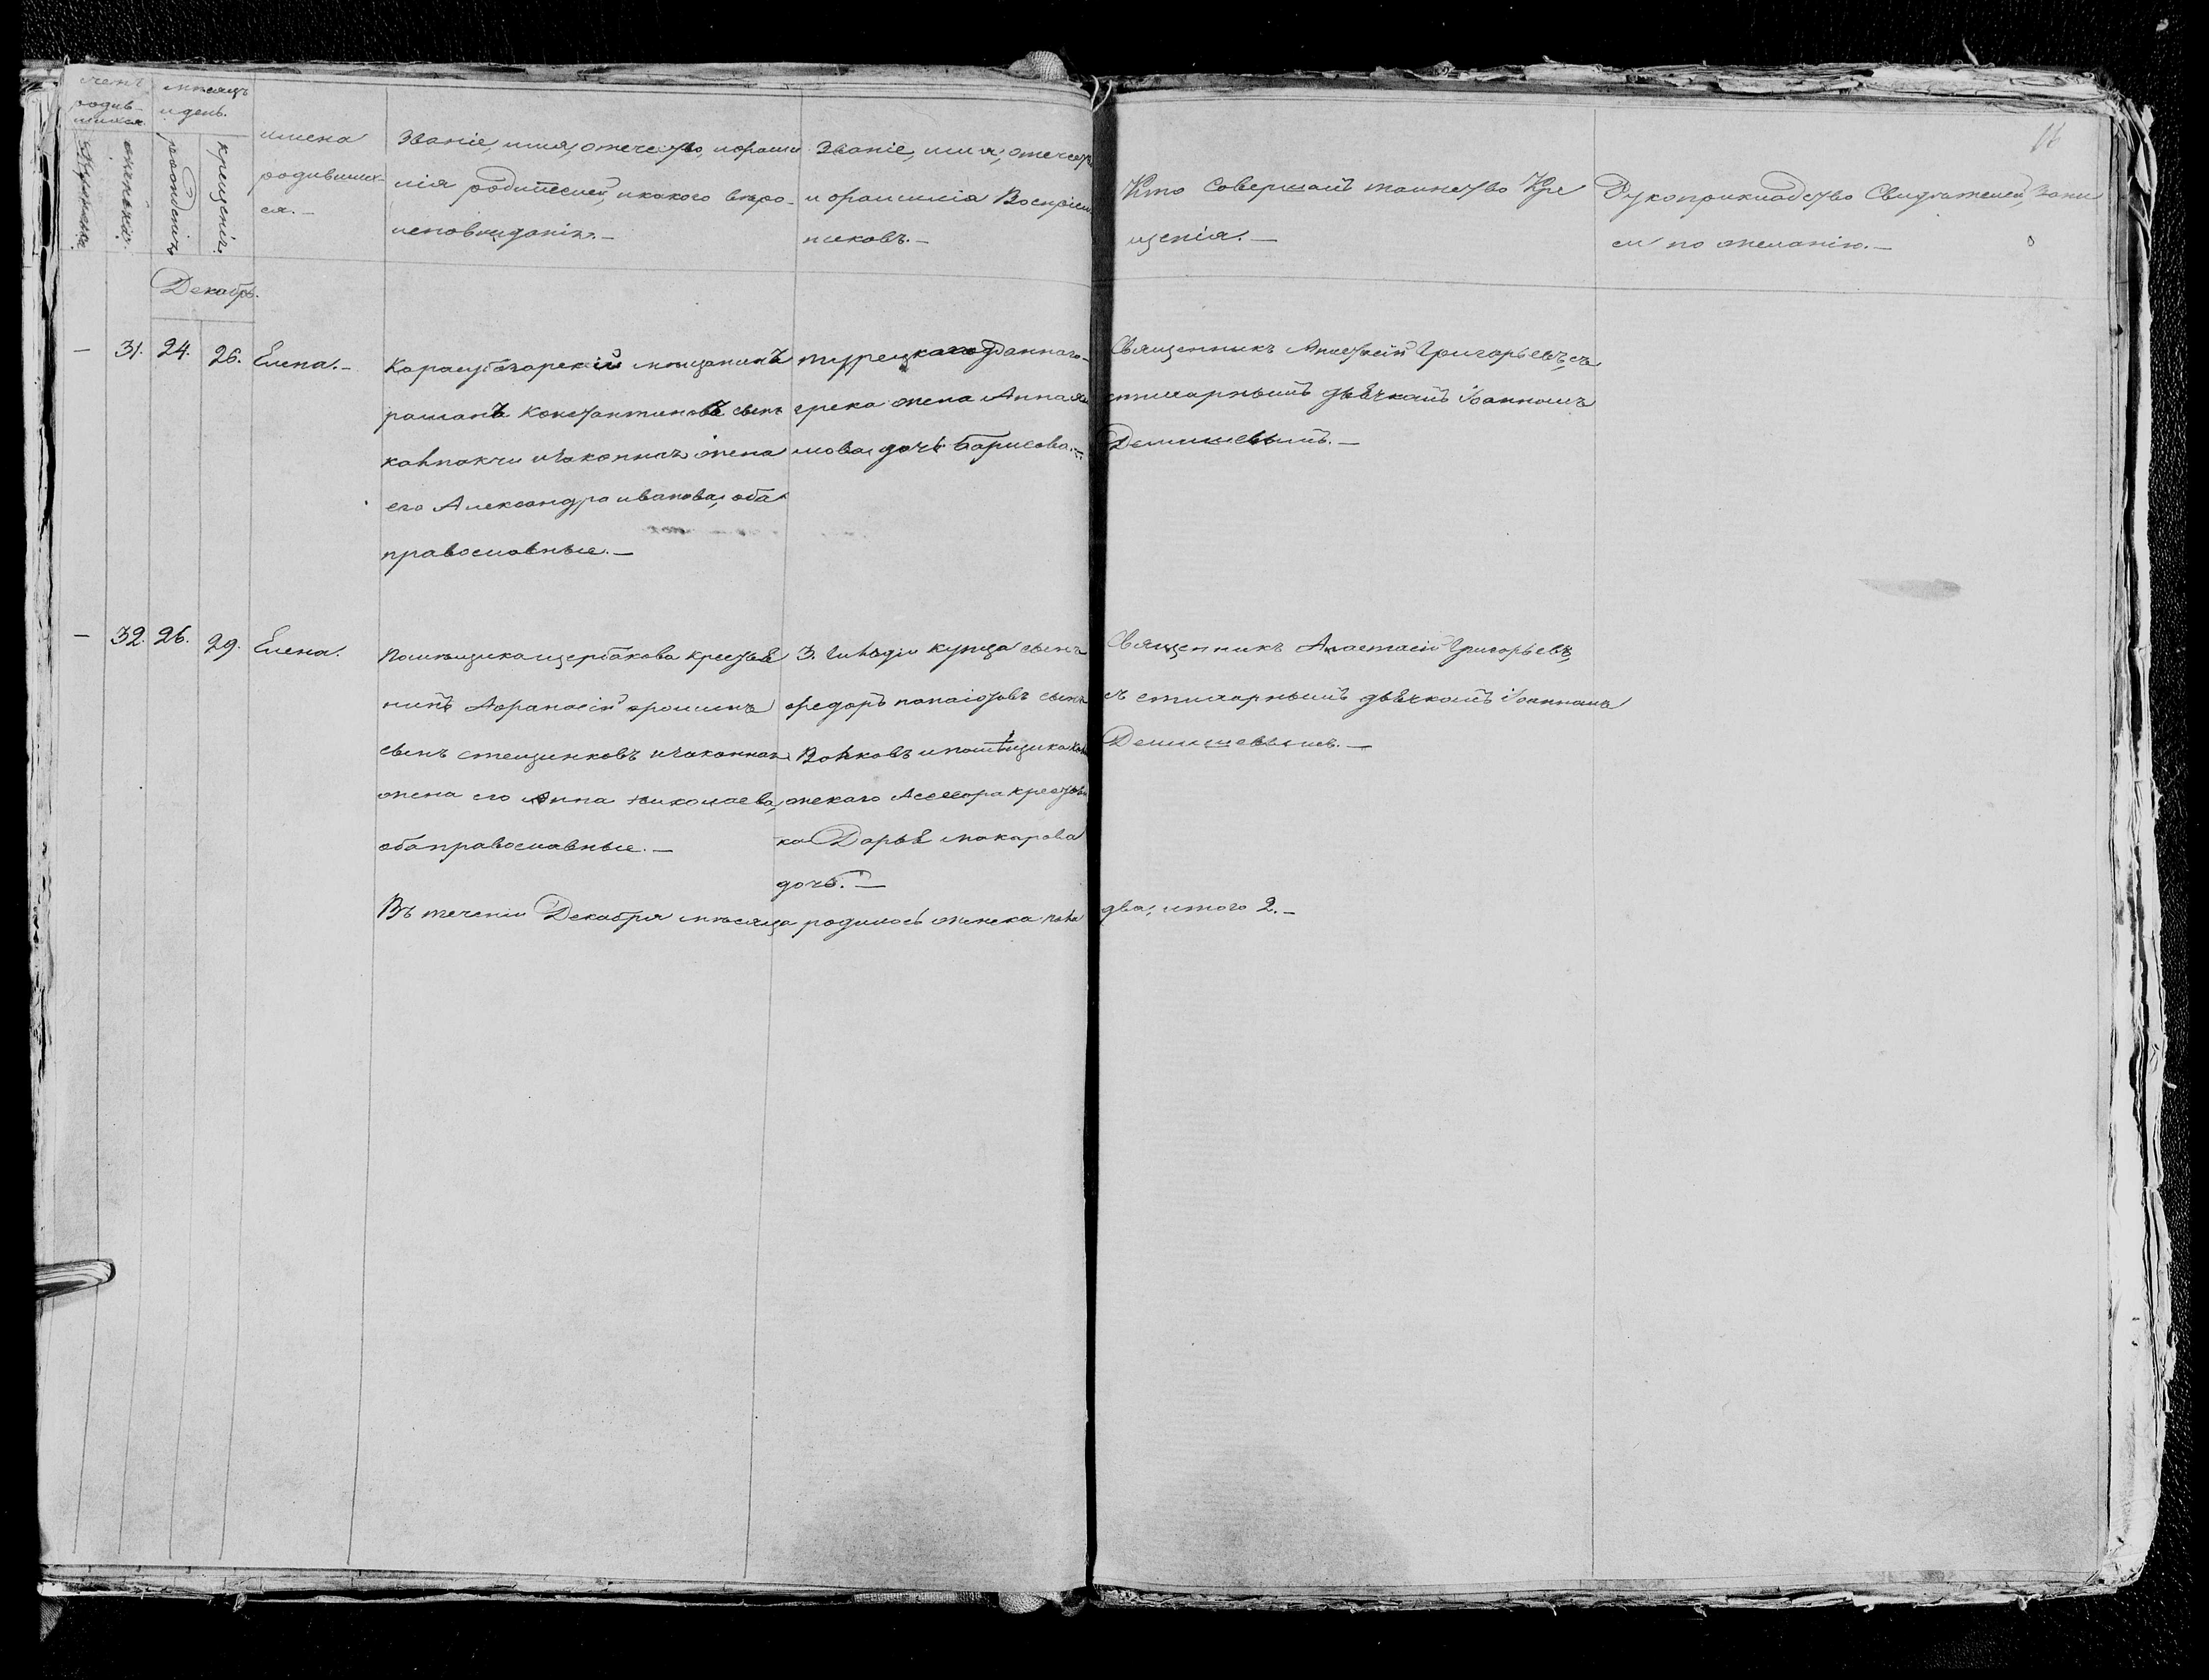 16
счетъ родив-
шихся.
мѣсяцъ
и день.
мужеска
женска
рожденія
крещенія
имена
родивших-
ся.—
Званіе, имя, отечество, и фами
лія родителей, и какого вѣро-
исповѣданія.—
Званіе, имя, отечест
и фамилія Воспріем
никовъ.—
Кто Совершалъ таинство Кре
щенія.—
Рукоприкладство Свидѣтелей, Запи
си по желанію.—
Декабрь.
— 31. 24. 26. Елена.—
Карасубазарскій мѣщанинъ
Константиновъ сынъ
и законная жена
его Александра иванова, оба
православные.—
турецкаго подданнаго
грека жена Анна
дочь Барисова.—
Священникъ Анастасій Григорьевъ съ
стихарнымъ дьячкомъ Іоанномъ
Демишевымъ.—
— 32. 26. 29. Елена.
Помѣщика щербакова крестья
нинъ Афанасій
сынъ и законная
жена его Анна николаева,
оба православные.—
3. гильдіи купца сынъ
федоръ сынъ
Волковъ и помѣщика
жскаго Ассесора крестьян
ка Дарья макарова
дочь.—
Священникъ Анастасій Григорьевъ
съ стихарнымъ дьячкомъ Іоанномъ
Демишевымъ.—
Въ теченіи Декабря мѣсяца родилось женска пола два, итого 2.—